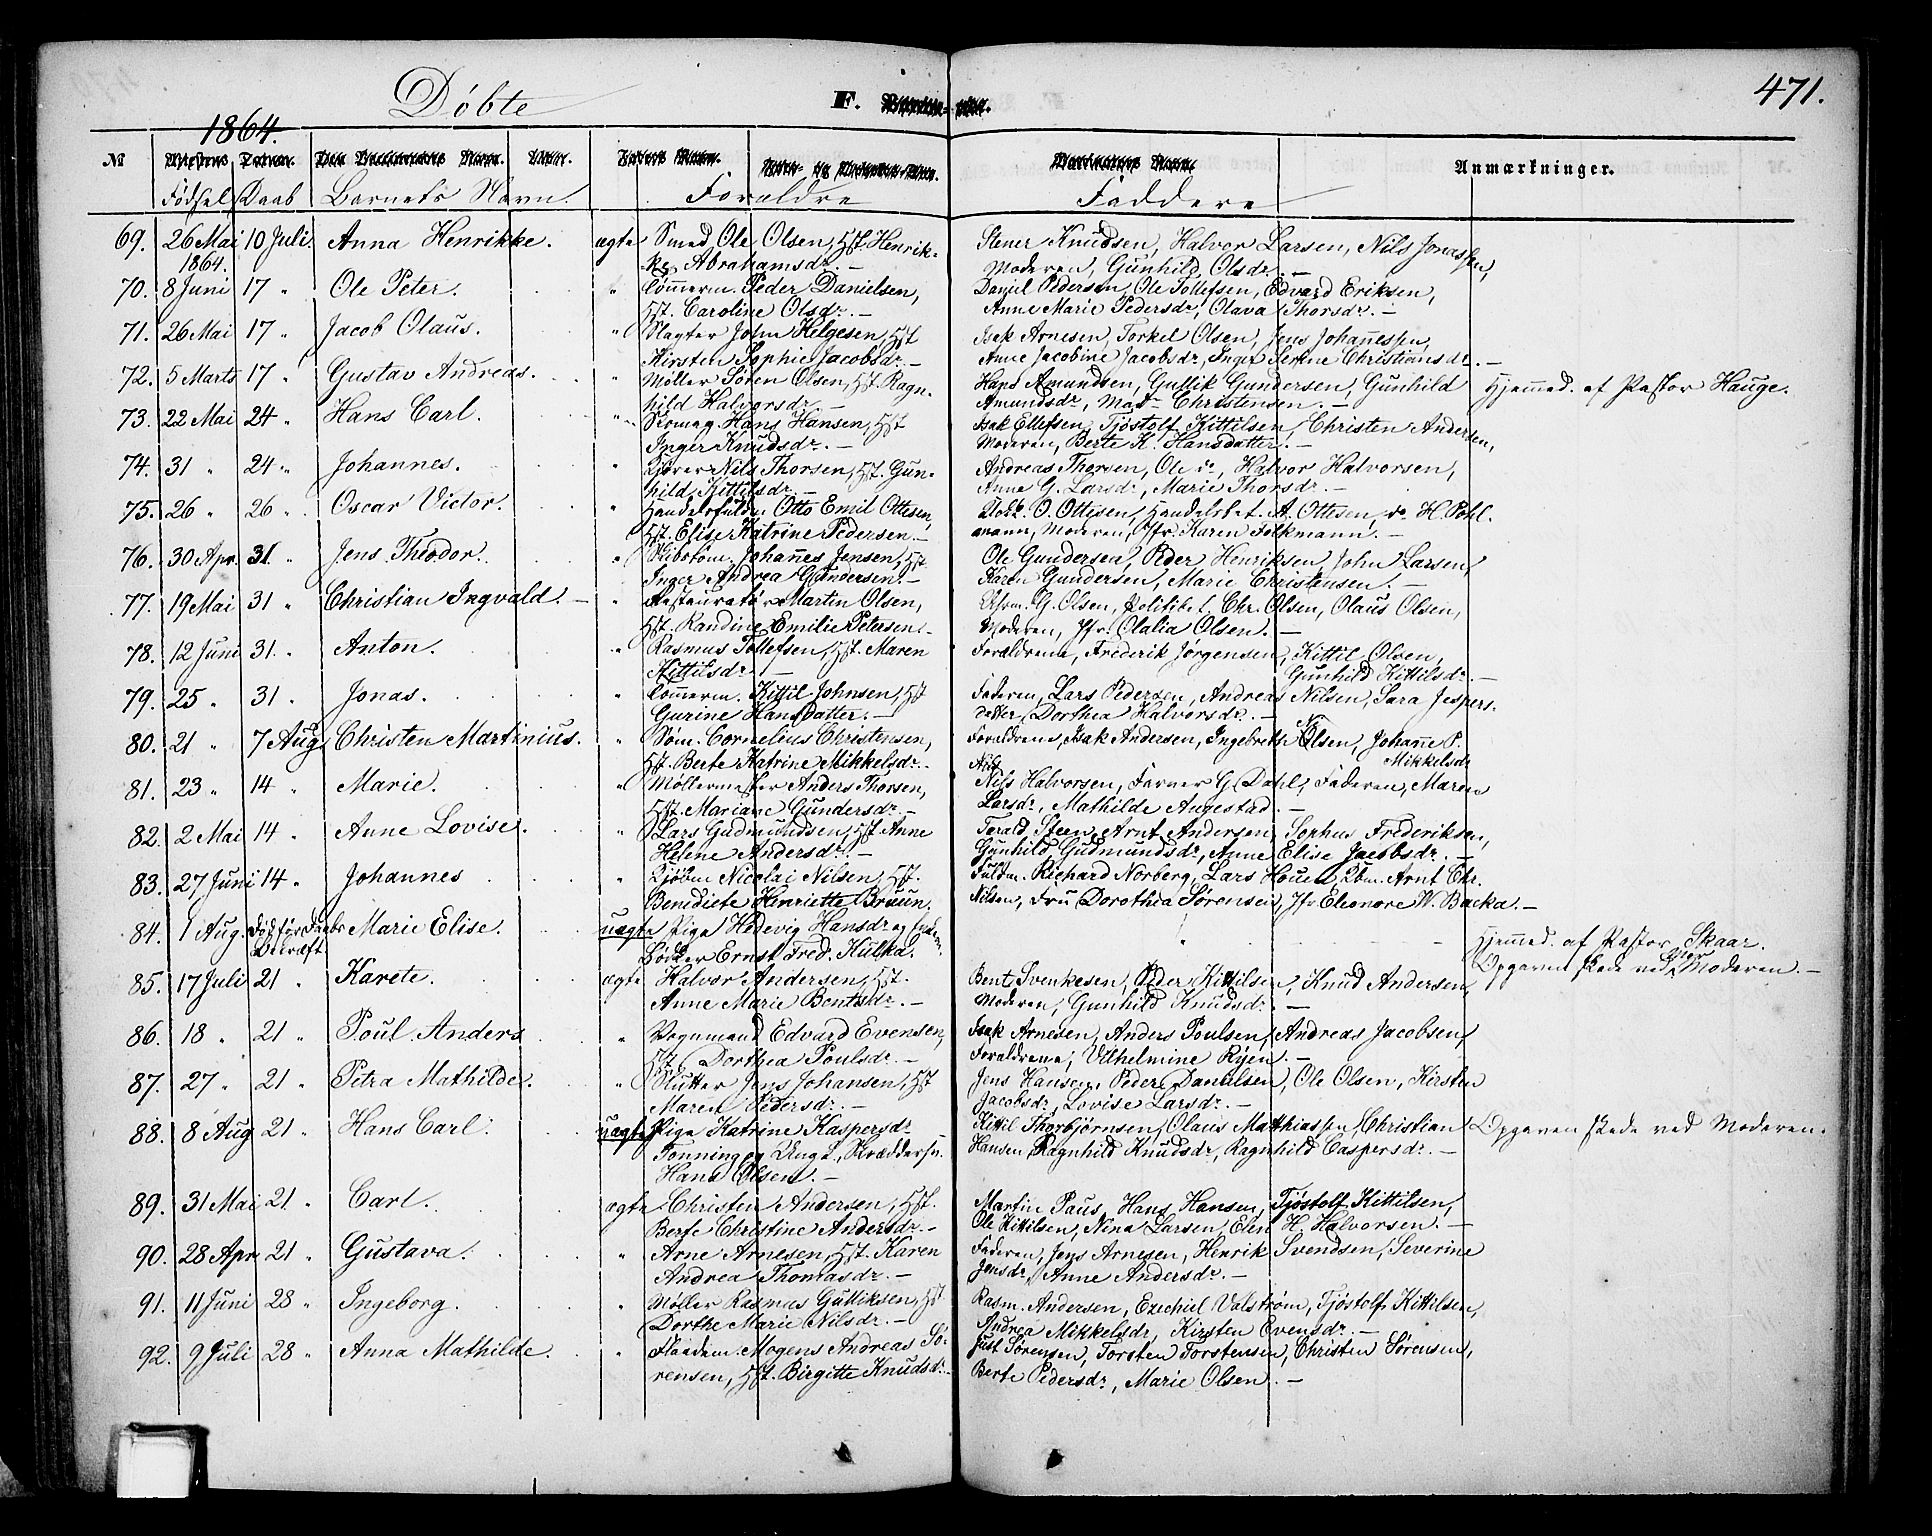 471.
Døbte
F.
1864.
№
Anmærkninger.
Fødsel Daab Barnets Navn. Forældre Faddere
69. 26 Mai 1864. 10 Juli. Anna Henrikke. ægte Smed Ole Olsen, Hst. Henrik- Stener Knudsen, Halvor Larsen, Nils Jonassen,
ke Abrahamsdr. — Moderen, Gunhild Olsdr. —
70. 8 Juni 17 " Ole Peter. " Tømerm. Peder Danielsen, Daniel Pedersen, Ole Tollefsen, Edvard Eriksen,
Hst. Caroline Olsdr. — Anne Marie Pedersdr, Olava Thorsdr. —
71. 26 Mai 17 " Jacob Olaus. " Slagter John Helgesen, Hst Isak Arnesen, Torkel Olsen, Jens Johannessen,
Kirsten Sophie Jacobsdr. — Anne Jacobine Jacobsdr, Inger Serine Christiansdr. —
72. 5 Marts 17 " Gustav Andreas. " Møller Søren Olsen, Hst Ragn- Hans Amundsen, Gullik Gundersen, Gunhild Hjemed. af Pastor Hauge.
hild Halvorsdr. — Amundsdr, Mad. Christensen. —
73. 22 Mai 24 " Hans Carl. " Hans Hansen, Hst Isak Ellefsen, Tjøstolf Kittilsen, Christen Andersen,
Inger Knudsdr. — Moderen, Berte K. Hansdatter. —
74. 31 " 24 " Johannes. " Nils Thorsen, Hst. Gun- Andreas Thorsen, Ole do, Halvor Halvorsen,
hild Kittilsdr. — Anne G. Larsdr, Marie Thorsdr. —
75. 26 " 26 " Oscar Victor. " Handelsfuldm. Otto Emil Ottesen, O. Ottesen, Handelsbet. A. Ottesen, do H. Pohl-
Hst. Elise Katrine Pedersen. — mann, Moderen, Jfr. Karen Folkmann. —
76. 30 Apr. 31 " Jens Theodor. " Skibstøm. Johannes Jensen, Hst. Ole Gundersen, Peder Henriksen, John Larsen,
Inger Andrea Gundersen. — Karen Gundersen, Marie Christensen. —
77. 19 Mai 31 " Christian Ingvald. — " Restauratør Martin Olsen, G. Olsen, Politibet. Chr. Olsen, Olaus Olsen,
Hst. Randine Emilie Petersen. Moderen, Jfr. Olalia Olsen. —
78. 12 Juni 31. " Anton. " Rasmus Tollefsen, Hst. Maren Forældrene, Frederik Jørgensen, Kittil Olsen,
Kittilsdr. — Gunhild Kittilsdr. —
79. 25 " 31 " Jonas. " Tømerm. Kittil Johnsen, Hst Faderen, Lars Pedersen, Andreas Nilsen, Sara Jespers-
Gurine Hansdatter. — datter, Dorthea Halvorsdr. —
80. 21 " 7 Aug Christen Martinius. " Søm. Cornelius Christensen, Forældrene, Isak Andersen, Ingebrethe Olsen, Johanne P.
Hst. Berte Katrine Mikkelsdr. Mikkelsdr
81. 23 " 14 " Marie. " Møllermester Anders Thorsen, Nils Halvorsen, Farver G. Dahl, Faderen, Maren
Hst. Mariane Gundersdr. — Larsdr, Mathilde Angestad. —
82. 2 Mai 14 " Anne Lovise. " Lars Gudmundsen, Hst. Anne Tarald Steen, Arnt Andersen, Sophus Frederiksen,
Helene Andersdr. — Gunhild Gudmundsdr, Anne Elise Jacobsdr. —
83. 27 Juni 14 " Johannes " Nicolai Nilsen, Hst. Fuldm. Richard Norberg, Lars Houen, Arnt Chr.
Benedicte Henriette Bruun. Nilsen, Fru Dorothea Sørensen, Jfr Eleonore W. Backa. —
84. 1 Aug. Død før Daabs Bekræft. Marie Elise. uægte Pige Hedevig Hansdr og Hjemed. af Pastor Skaar.
Bødker Ernst Fred. Kulka. Opgaven skede ved Moderen. —
85. 17 Juli 21 " Karete. ægte Halvor Andersen, Hst. Bent Svenkesen, Peder Kittilsen, Knud Andersen,
Anne Marie Bentsdr. — Moderen, Gunhild Knudsdr. —
86. 18 " 21 " Poul Anders " Vognmand Edvard Evensen, Isak Arnesen, Anders Poulsen, Andreas Jacobsen,
Hst. Dorthea Poulsdr. — Forældrene, Vilhelmine Ryen. —
87. 27 " 21 " Petra Mathilde. " Slutter Jens Johansen, Hst Jens Hansen, Peder Danielsen, Ole Olsen, Kirsten
Maren Pedersdr. — Jacobsdr, Lovise Larsdr. —
88. 8 Aug 21 " Hans Carl. uægte Pige Katrine Kaspersdr Kittil Thorbjørnsen, Olaus Matthiassen, Christian Opgaven skede ved Moderen.
Tonning og Ungk. Skræddersv. Hansen, Ragnhild Knudsdr, Ragnhild Caspersdr. —
Hans Olsen. —
89. 31 Mai 21 " Carl. ægte Christen Andersen, Hst. Martin Paus, Hans Hansen, Tjøstolf Kittilsen,
Berte Christine Andersdr. — Ole Kittilsen, Nina Larsen, Elen H. Halvorsen. —
90. 28 Apr 21 " Gustava. " Arne Arnesen, Hst. Karen Faderen, Jens Arnesen, Henrik Svendsen, Severine
Andrea Thomasdr. — Jensdr, Anne Andersdr. —
91. 11 Juni 28 " Ingeborg. " Møller Rasmus Gulliksen, Hst Rasm. Andersen, Ezechiel Valstrøm, Tjøstolf Kittilsen,
Dorthe Marie Nilsdr. — Andrea Mikkelsdr, Kirsten Evensdr. —
92. 9 Juli 28 " Anna Mathilde. " Mogens Andreas Sø- Just Sørensen, Torsten Torstensen, Christen Sørensen,
rensen, Hst. Birgitte Knudsdr. — Berte Pedersdr, Marie Olsen. —